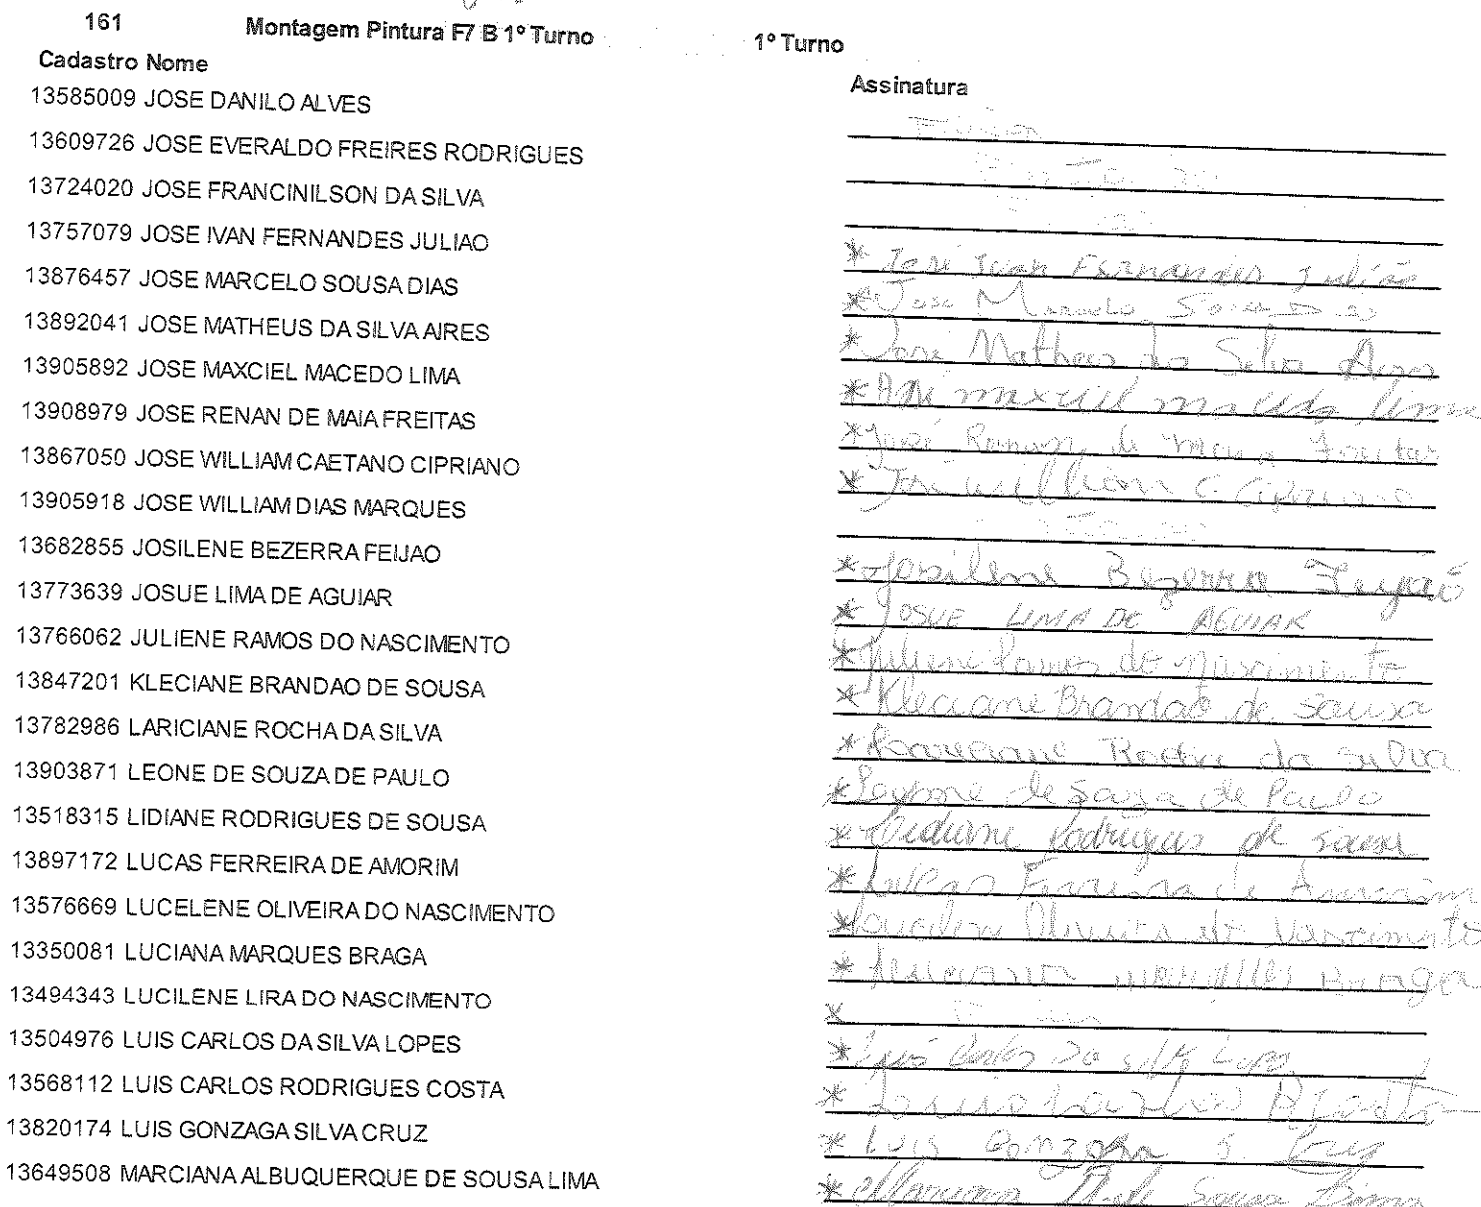 161 Montagem Pintura F7 B 1º Turno 1º Turno
Cadastro Nome Assinatura
13585009 JOSE DANILO ALVES
13609726 JOSE EVERALDO FREIRES RODRIGUES
13724020 JOSE FRANCINILSON DA SILVA
13757079 JOSE IVAN FERNANDES JULIAO * José Ivan Fernandes Julião
13876457 JOSE MARCELO SOUSA DIAS * Jose Marcelo Sousa Dias
13892041 JOSE MATHEUS DA SILVA AIRES * José Matheus da Silva Aires
13905892 JOSE MAXCIEL MACEDO LIMA * maxciel macedo lima
13908979 JOSE RENAN DE MAIA FREITAS * José Renan de Maia Freitas
13867050 JOSE WILLIAM CAETANO CIPRIANO * José William C. Cipriano
13905918 JOSE WILLIAM DIAS MARQUES
13682855 JOSILENE BEZERRA FEIJAO * Josilene Bezerra Feijaõ
13773639 JOSUE LIMA DE AGUIAR * JOSUE LIMA DE AGUIAR
13766062 JULIENE RAMOS DO NASCIMENTO * Juliene Ramos do Nascimento
13847201 KLECIANE BRANDAO DE SOUSA * Kleciane Brandaõ de Sousa
13782986 LARICIANE ROCHA DA SILVA * Lariciane Rocha da Silva
13903871 LEONE DE SOUZA DE PAULO * de Souza de Paulo
13518315 LIDIANE RODRIGUES DE SOUSA * Lidiane Rodrigues de Sousa
13897172 LUCAS FERREIRA DE AMORIM * Lucas Ferreira de Amorim
13576669 LUCELENE OLIVEIRA DO NASCIMENTO * Oliveira do Nascimento
13350081 LUCIANA MARQUES BRAGA * Luciana Marques Braga
13494343 LUCILENE LIRA DO NASCIMENTO
13504976 LUIS CARLOS DA SILVA LOPES * Luis Carlos Da Silva Lopes
13568112 LUIS CARLOS RODRIGUES COSTA * Luis Carlos R Costa
13820174 LUIS GONZAGA SILVA CRUZ * Luis Gonzaga S. Cruz
13649508 MARCIANA ALBUQUERQUE DE SOUSA LIMA * Marciana A. de Sousa Lima